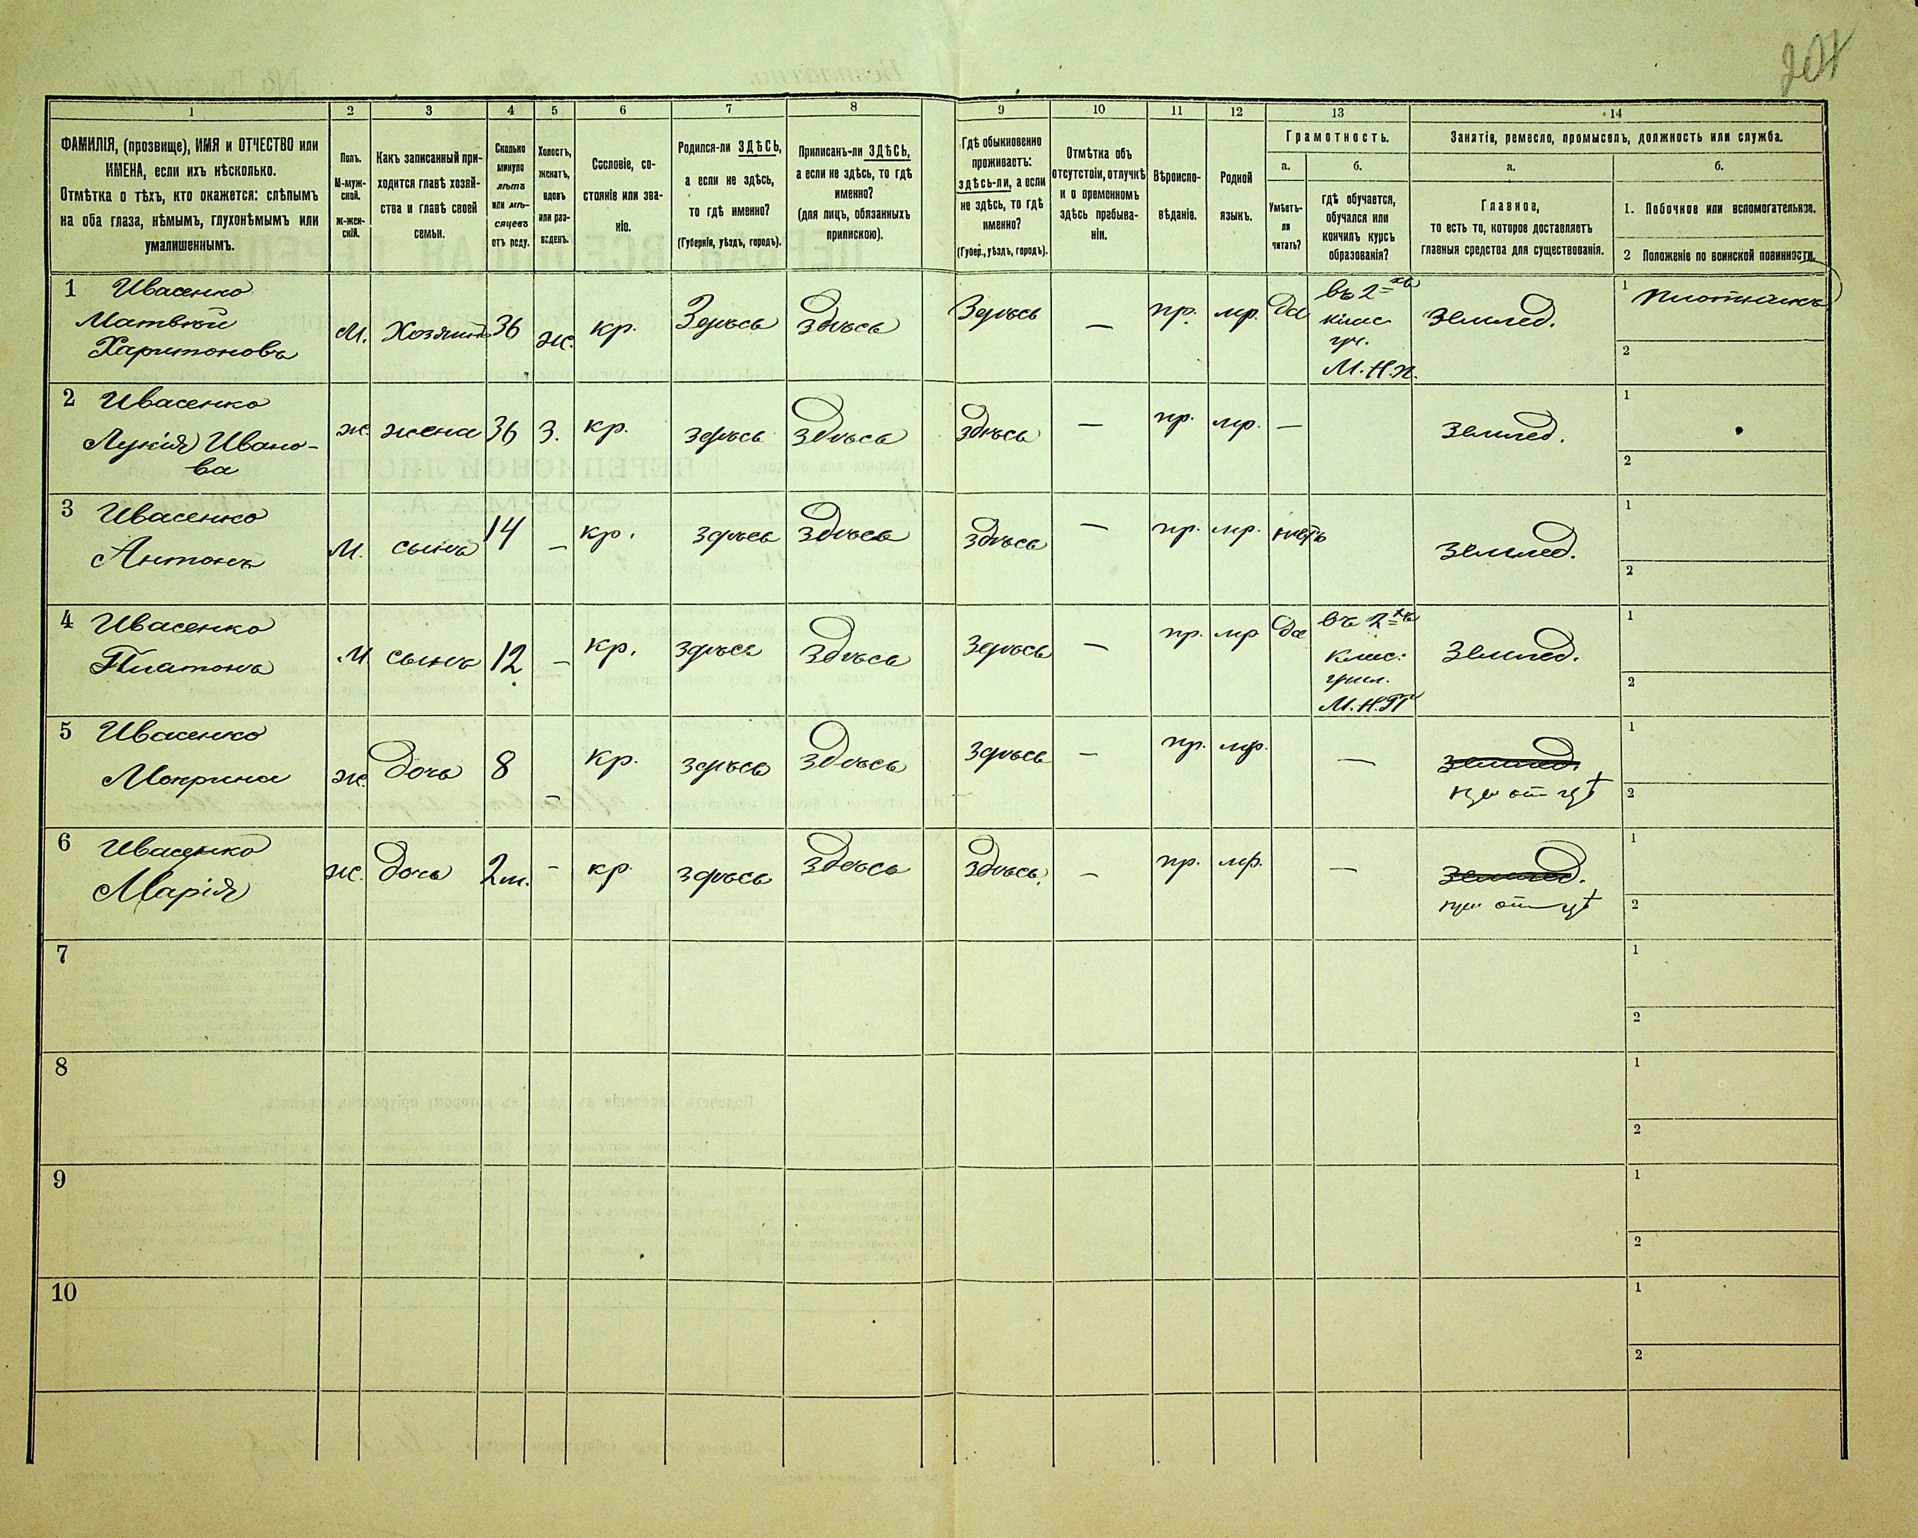 207
1
2
3
4
5
6
7
8
9
10
11
12
13
14
ФАМИЛІЯ, (прозвище), ИМЯ и ОТЧЕСТВО или
ИМЕНА, если ихъ нѣсколько.
Отмѣтка о тѣхъ, кто окажется: слѣпымъ
на оба глаза, нѣмымъ, глухонѣмымъ или
умалишеннымъ.
Полъ.
М-муж-
ской.
Ж-жен-
скій.
Какъ записанный при-
ходится главѣ хозяй-
ства и главѣ своей
семьи.
Сколько
минуло
лѣтъ
или мѣ-
сяцевъ
отъ роду.
Холостъ,
женатъ,
вдовъ
или раз-
веденъ.
Сословіе, со-
стояніе или зва-
ніе.
Родился-ли ЗДѢСЬ,
а если не здѣсь,
то гдѣ именно?
(Губернія, уѣздъ, городъ).
Приписанъ-ли ЗДѢСЬ,
а если не здѣсь, то гдѣ
именно?
(для лицъ, обязанныхъ
припискою).
Гдѣ обыкновенно
проживаетъ:
здѣсь-ли, а если
не здѣсь, то гдѣ
именно?
(Губер., уѣздъ, городъ).
Отмѣтка объ
отсутствіи, отлучкѣ
и о временномъ
здѣсь пребыва-
ніи.
Вѣроиспо-
вѣданіе.
Родной
языкъ.
Грамотность.
а.
Умѣетъ-
ли
читать?
б.
гдѣ обучается,
обучался или
кончилъ курсъ
образованія?
Занятія, ремесло, промыселъ, должность или служба.
а.
Главное,
то есть то, которое доставляетъ
главныя средства для существованія.
б.
1. Побочное или вспомогательное.
2 Положеніе по воинской повинности.
1 Ивасенко
Матвѣй
Харитоновъ
М. Хозяинъ 36 ж. кр. Здѣсь здѣсь Здѣсь — пр. мр. да
въ 2=хъ
клас
уч.
М.Н.П.
землед.
1 плотникъ
2
2 Ивасенко
Лукія Ивано-
ва
ж. жена 36 З. кр. здѣсь здѣсь здѣсь — пр. мр. — землед.
1
2
3 Ивасенко
Антонъ
М. сынъ 14 — кр. здѣсь здѣсь здѣсь — пр. мр. нѣтъ землед.
1
2
4 Ивасенко
Платонъ
М. сынъ 12 — кр. здѣсь здѣсь здѣсь — пр. мр да
въ 2=хъ
клас.
учил.
М.Н.П
землед.
1
2
5 Ивасенко
Макрина
ж. дочь 8 — кр. здѣсь здѣсь здѣсь — пр. мр. — землед.
при от
1
2
6 Ивасенко
Марія
ж. дочь 2 м. - кр. здѣсь здѣсь здѣсь — пр. мр. — землед.
при от
1
2
7
1
2
8
1
2
9
1
2
10
1
2